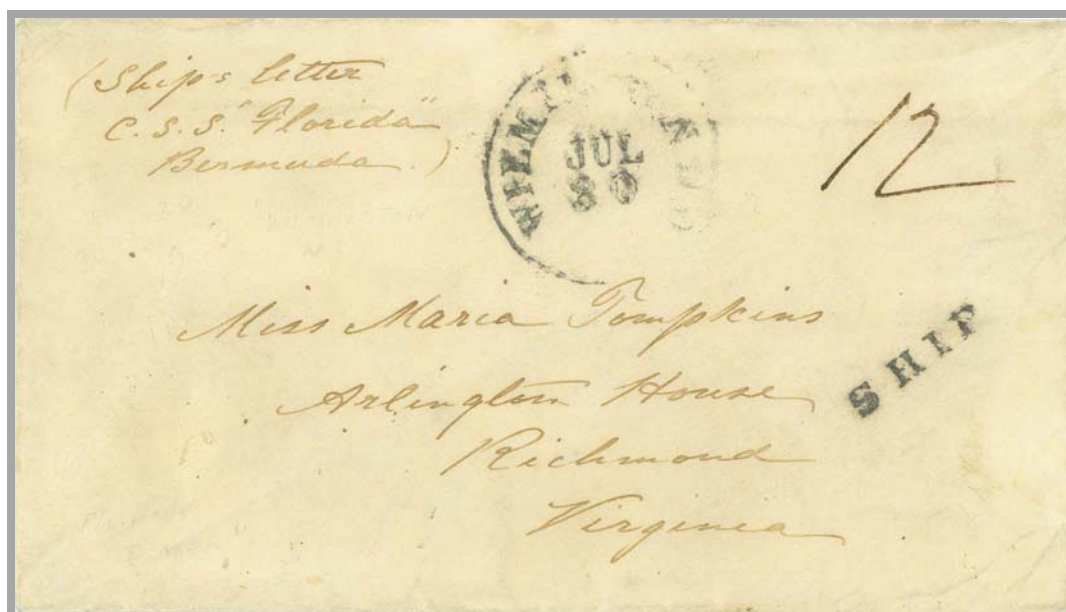 (Ship's letter
C.S.S. "Florida"
Bermuda.)
JUL
30
12
SHIP
Miss Maria Tompkins
Arlington House
Richmond
Virginia